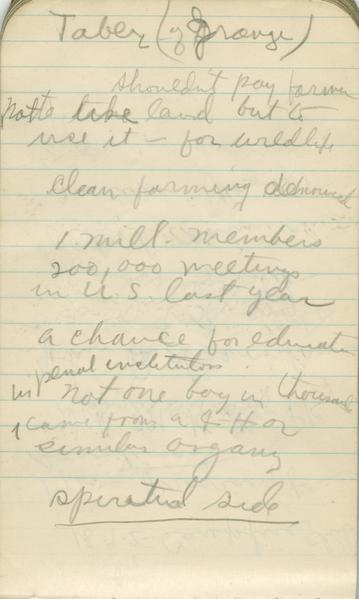 Taber (of Grange)
shouldn't pay farmer
not to take land but to
use it - for wildlife
clean farming denounced
1 mill. members
200,000 meetings
in U.S. last year
a chance for education
in penal institutions
not one boy in thousands
came from a 4 H or
similar organ
spiritual side